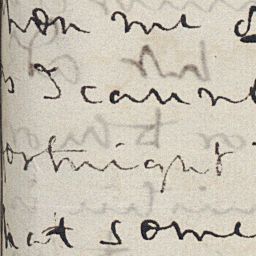 hon me
I cann
ortnight
hat some